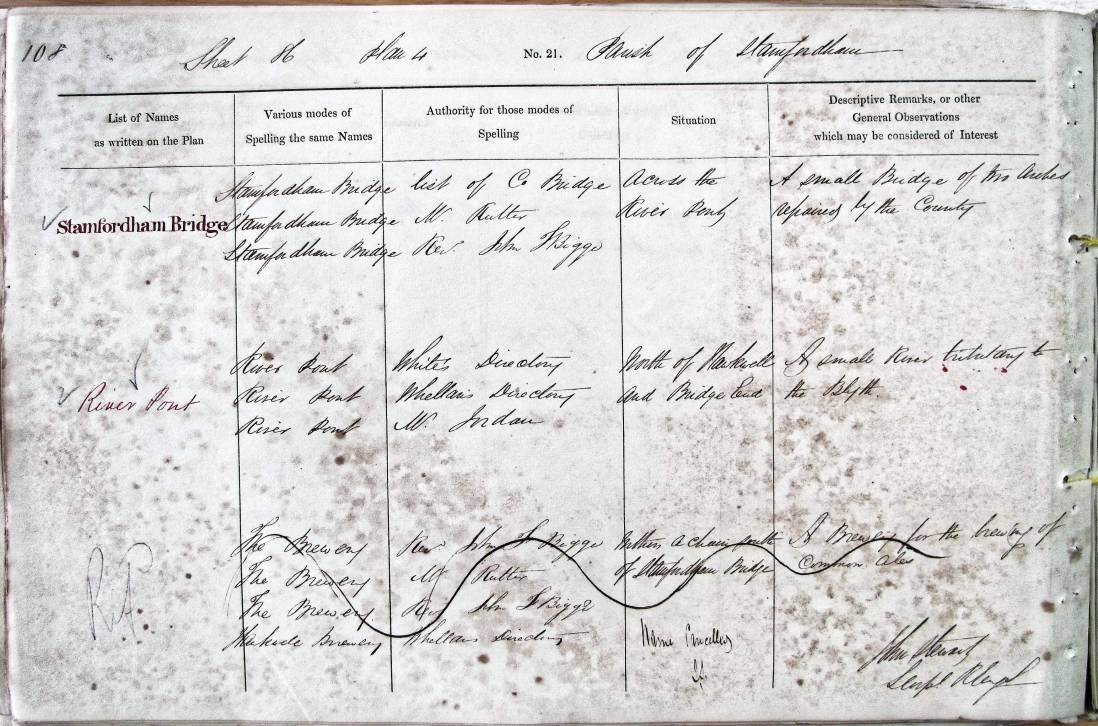 108
Sheet 86 Plan 4 No. 21. Parish of Stamfordham
List of Names as written on the Plan
Various modes of Spelling the same Names
Authority for those modes of Spelling
Situation
Descriptive Remarks, or other General Observations which may be considered of Interest
Stamfordham Bridge list of Co Bridge Across the A small Bridge of two Arches
Stamfordham Bridge Stamfordham Bridge Mr. Rutter River Pont repaired by the County
Stamfordham Bridge Rev. John F Bigge
River Pont White's Directory North of Hawkwell A small River tributary to
River Pont River Pont Whellan's Directory and Bridge End the Blyth.
River Pont Mr. Jordan
The Brewery Rev. John F Bigge Within a chain south A Brewery for the brewing of
The Brewery Mr Rutter of Stamfordham Bridge Common Ales
The Brewery Rev John F Bigge
Brewery Whellans Directory Name Cancelled
John Stewart